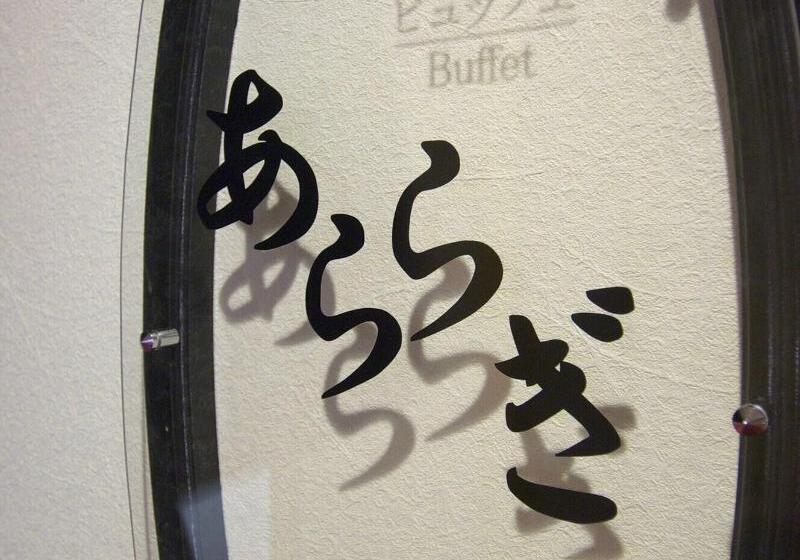 ビュッフェ
Buffet
あららぎ